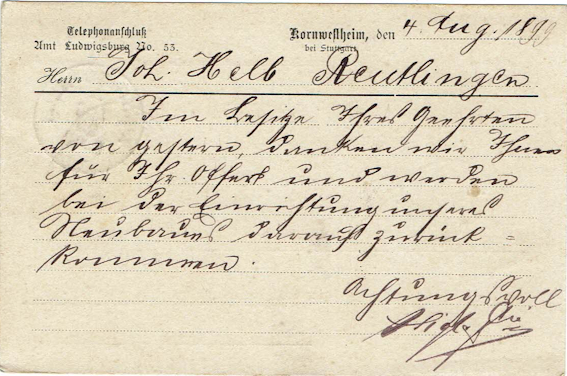 Telephonanschluß
Amt Ludwigsburg No. 53.
Kornwestheim, den 4. Aug. 1899
bei Stuttgart
Herrn Joh. Helb Reutlingen
Im Besitze Ihres Geehrten
von gestern, danken wir Ihnen
für Ihr Offert und werden
bei der Einrichtung unseres
Neubaues darauf zurück=
kommen.
Achtungsvoll